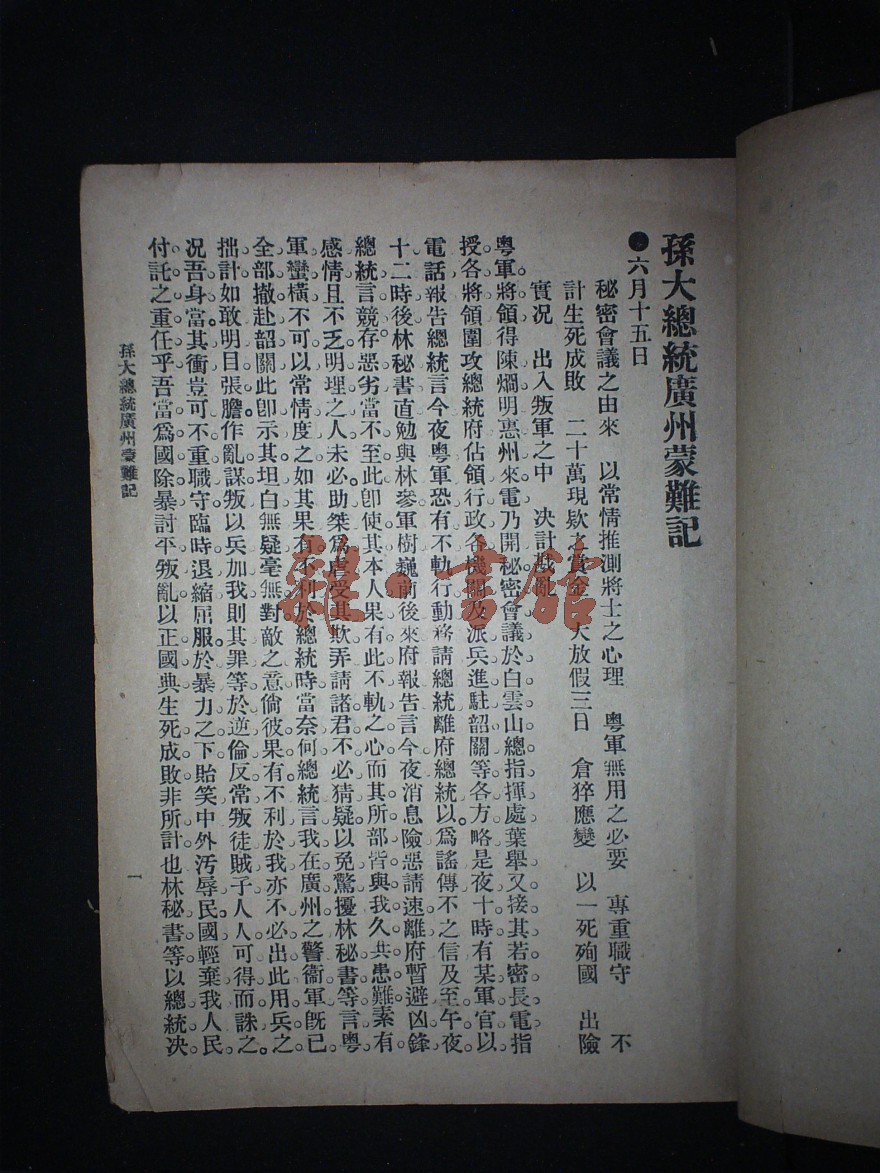 孫大總統廣州蒙難記
●六月十五日
秘密會議之由來　以常情推測將士之心理　粵軍無用之必要　專重職守　不
計生死成敗　二十萬現欵之賞金　大放假三日　倉猝應變　以一死殉國　出險
實況　出入叛軍之中　决計戡亂
粵軍將領得陳烱明惠州來電乃開秘密會議於白雲山總指揮處葉舉又接其若密長電指
授各將領圍攻總統府佔領行政各機關及派兵進駐韶關等各方略是夜十時有某軍官以
電話報告總統言今夜粵軍恐有不軌行動務請總統離府總統以爲謠傳不之信及至午夜
十二時後林秘書直勉與林參軍樹巍前後來府報告言今夜消息險惡請速離府暫避凶鋒
總統言競存惡劣當不至此卽使其本人果有此不軌之心而其所部皆與我久共患難素有
感情且不乏明理之人未必助桀爲虐受其欺弄請諸君不必猜疑以免驚擾林秘書等言粵
軍蠻橫不可以常情度之如其果有不利於總統時當奈何總統言我在廣州之警衞軍旣已
全部撤赴韶關此卽示其坦白無疑毫無對敵之意倘彼果有不利於我亦不必出此用兵之
拙計如敢明目張膽作亂謀叛以兵加我則其罪等於逆倫反常叛徒賊子人人可得而誅之
况吾身當其衝豈可不重職守臨時退縮屈服於暴力之下貽笑中外汚辱民國輕棄我人民
付託之重任乎吾當爲國除暴討平叛亂以正國典生死成敗非所計也林秘書等以總統决
孫大總統廣州蒙難記
一
雜·書館